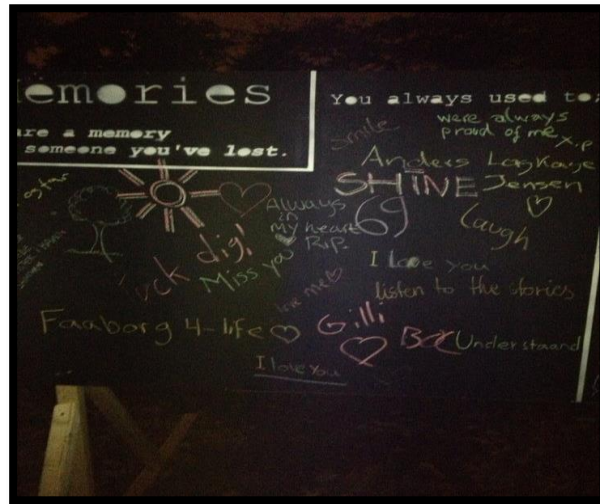 emories
are a memory
someone you've lost.
You always used to:
were always
proud of me
smile
Anders
SHINE Jensen
69
Laugh
Always
in
my heart
R.I.P.
dig!
Miss you
I Love you
listen to the stories
love me
Faaborg 4-life
Gilli
Understaand
I love you